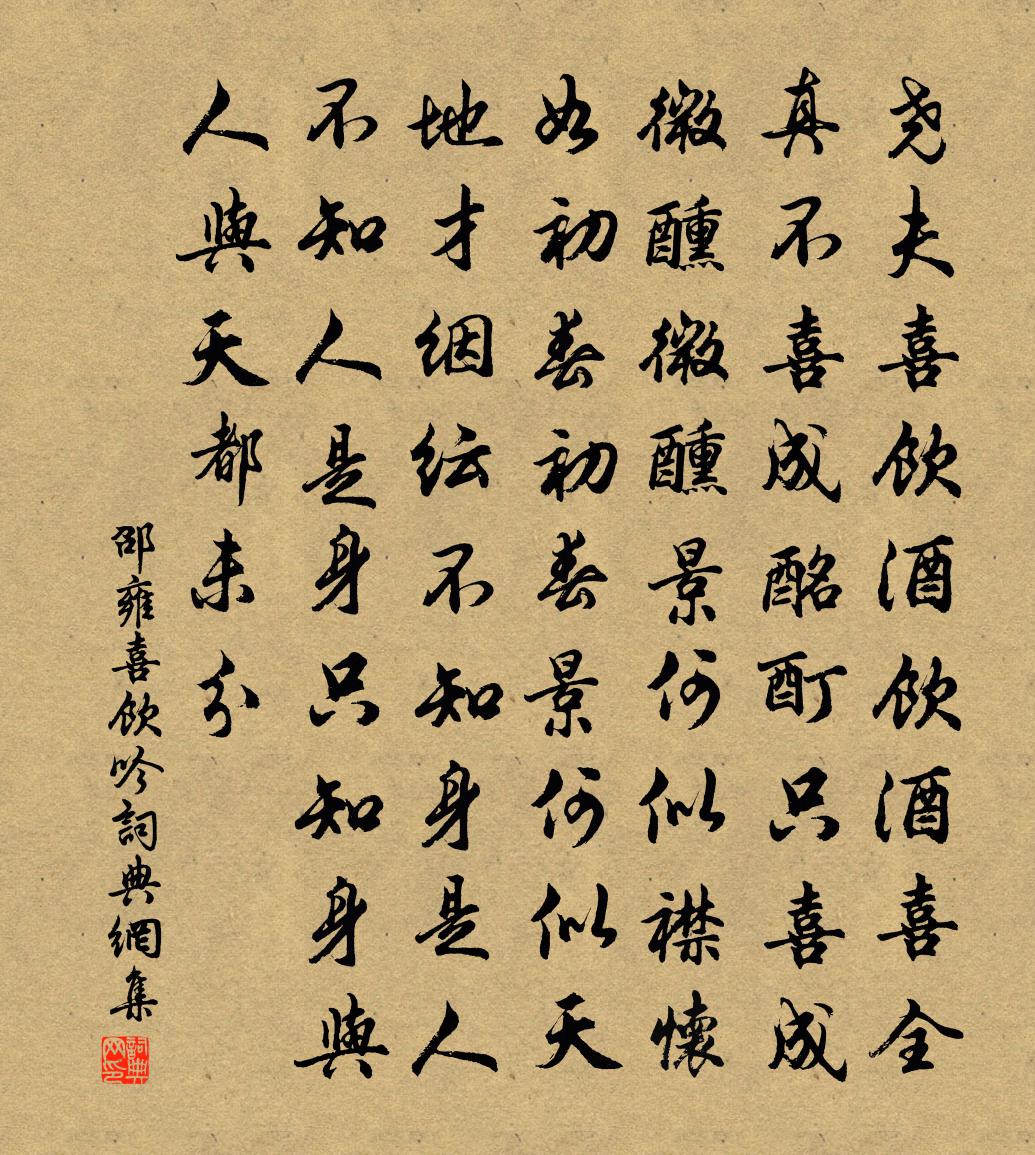 尧夫喜飲酒飲酒喜全
真不喜成酩酊只喜成
微醺微醺景何似襟懷
如初春初春景何似天
地才絪紜不知身是人
不知人是身只知身與
人與天都未分
邵雍喜飲吟詞典網集
詞典网印